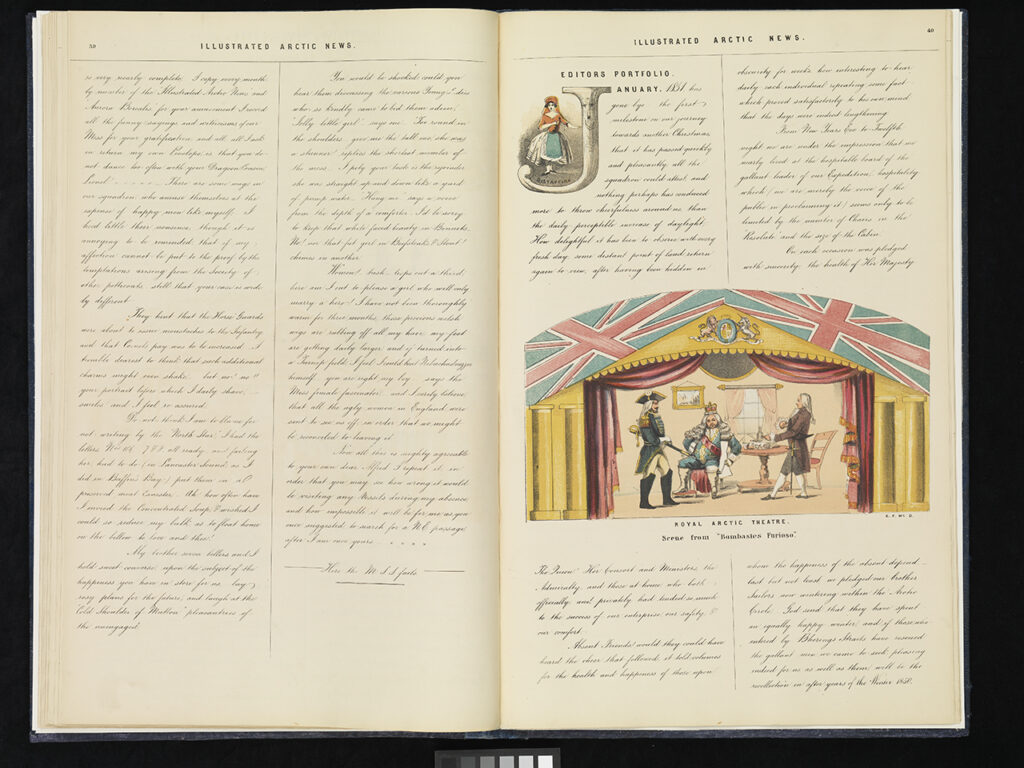 39
ILLUSTRATED ARCTIC NEWS.
so very nearly complete. I copy every month
by number of the Illustrated Arctic News and
Aurora Borealis for your amusement I record
all the funny sayings and witticisms of our
Mess for your gratification, and all I ask
in return my own Penelope, is that you do
not dance too often with your Dragoon Cousin
Lionel . . . . . . There are some wags in
our squadron, who amuse themselves at the
expense of happy men like myself. I
heed little their nonsense, though it is
annoying to be reminded that of my
affection cannot be put to the proof by the
temptations arising from the society of
other petticoats, still that your case is wide
by different
They hint that the Horse Guards
were about to issue moustaches to the Infantry
and that Cornets pay was to be increased. I
tremble dearest to think that such additional
charms might even shake, but no! no!!
your portrait before which I daily shave,
smiles, and I feel re assured.
Do not think I am to blame for
not writing by the North Star. I had the
letters Nos 6 7 8 all ready, and failing
her, had to do (in Lancaster Sound) as I
did in Baffins Bay) put them in a
preserved meat Canister. Ah how often have
I envied the Concentrated Soup, & wished I
could so reduce my bulk as to float home
on the billow to love and thee!
My brother seven tellers and I
hold sweet converse upon the subject of the
happiness you have in store for us, lay
rosy plans for the future, and laugh at the
Cold Shoulder of Mutton pleasantries of
the unengaged.
You would be shocked could you
hear them discussing the various Ladies
who so kindly came to bid them adieu,
"Jolly little girl" says one "Too round in
the shoulders, give me the tall one, she was
a stunner" replies the shortest member of
the mess. I pity your taste is the rejoinder
she was straight up and down like a yard
of pump water. Hang me says a voice
from the depth of a comforter, I'd be sorry
to keep that white faced beauty in Bonnets.
No! nor that fat girl in Beefsteaks & Stout!
chimes in another
Humm! bash, bursts out a third,
here am I sent to please a girl who will only
marry a hero! I have not been thoroughly
warm for three months, those precious welsh
wigs are rubbing off all my hair, my feet
are getting daily larger, and if turned into
a Turnip field, I feel I would hoe Nebuchadnezzar
himself. you are right my boy says the
Mess female fascinator, and I verily believe
that all the ugly women in England were
sent to see us off, in order that we might
be reconciled to leaving it.
Now all this is mighty agreeable
to your own dear Alfred I repeat it in
order that you may see how wrong it would
be visiting any Vessels during my absence
and how impossible it will be for me, as you
once suggested to search for a N.E. passage,
after I am once yours . . . .
Here the M.S.S. fails
40
ILLUSTRATED ARCTIC NEWS.
EDITORS PORTFOLIO.
JANUARY, 1851 has
gone bye the first
milestone on our journey
towards another Christmas,
that it has passed quickly
and pleasantly, all the
squadron could attest, and
nothing perhaps has conduced
more to throw cheerfulness around us than
the daily perceptible increase of daylight.
How delightful it has been to observe with every
fresh day, some distant point of land return
again to view, after having been hidden in
obscurity for weeks, how interesting to hear
daily each individual repeating some fact
which proved satisfactorily to his own mind
that the days were indeed lengthening.
From New Years Eve to Twelfth
night we are under the impression that we
nearly lived at the hospitable board of the
gallant leader of our Expedition, hospitality
which (we are merely the voice of the
public in proclaiming it) seems only to be
limited by the number of Chairs in the
Resolute and the size of the Cabin.
On each occasion was pledged
with sincerity, the health of Her Majesty
DISTAFFINA
E. F. McD.
ROYAL ARCTIC THEATRE.
Scene from "Bombastes Furioso".
The Queen! Her Consort and Ministers, the
Admiralty, and those at home who both
officially and privately had tended so much
to the success of our enterprise, our safety, &
our comfort.
Absent Friends! would they could have
heard the cheer that followed, it told volumes
for the health and happiness of those upon
whom the happiness of the absent depend
last but not least we pledged our brother
Sailors now wintering within the Arctic
Circle. God send that they have spent
an equally happy winter, and if those who
entered by Bherings Straits have rescued
the gallant men we came to seek, pleasing
indeed for us as well as them, will be the
recollection in after years of the Winter 1850.